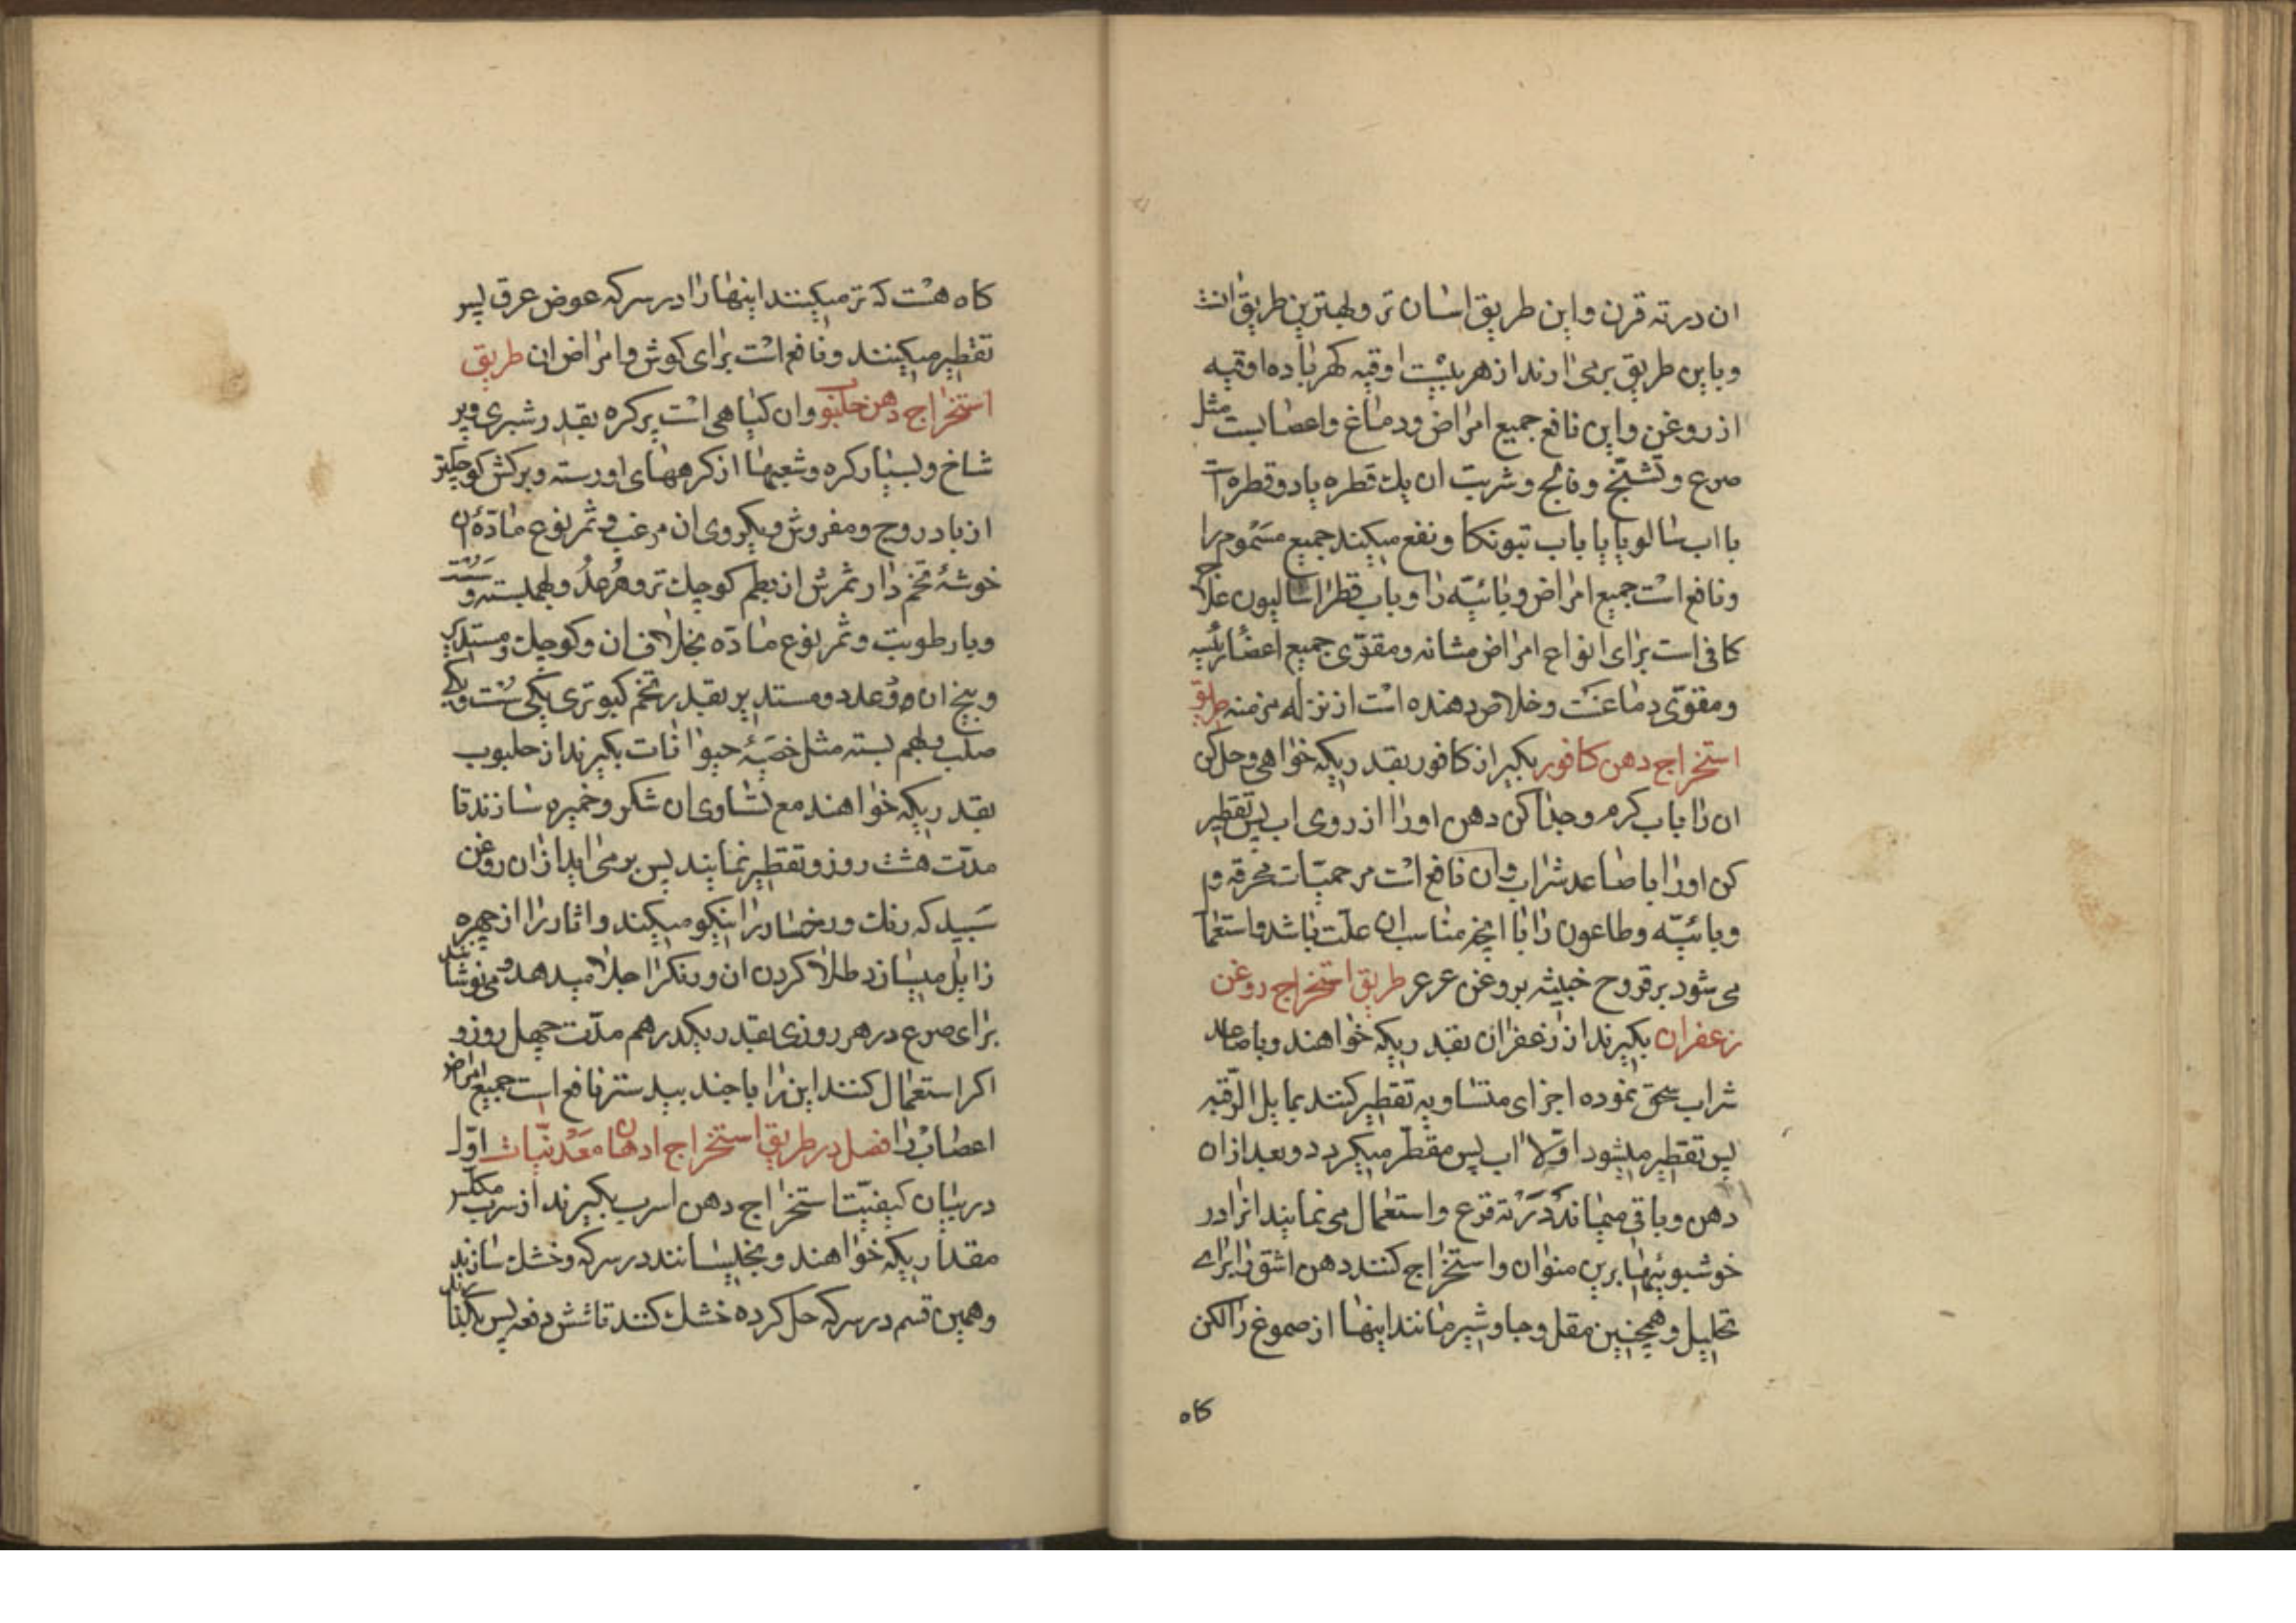 ان در ته قرن و این طریق اسان تر و بهترین طریق انست
و باین طریق برمی ارند از هر بیست اوقیه کهربا ده اوقیه
از روغن و این نافع جمیع امراض و دماغ و اعصابست مثل
صرع و تشنج و فالج و شربت ان یك قطره یا دو قطره است
با اب سالوبا یا باب تبونكا و نفع میکند جمیع مسموم را
و نافع است جمیع امراض وبائیه را و باب قطراسالیون علاج
کافی است برای انواع امراض مثانه و مقوی جمیع اعضا رئیسه
و مقوی دماغست و خلاص دهنده است از نزله مزمنه طریق
استخراج دهن کافور بکیر از کافور بقدریکه خواهی و حل کن
ان را باب کرم و جدا کن دهن اورا از روی اب پس تقطیر
کن اورا با صاعد شراب و ان نافع است مر حمیات محرقه و
وبائیه و طاعون را با انچه مناسب ان علت باشد و استعما
می شود بر قروح خبیثه بروغن عرعر طریق استخراج روغن
زعفران بکیرند از زعفران بقدریکه خواهند و با صاعد
شراب سحق نموده اجزای متساویه تقطیر کنند بمایل الرقبه
پس تقطیر میشود اولا اب پس مقطر میکردد و بعد از ان
دهن و باقی میماند در ته قرع و استعمال می نمایند انرا در
خوشبوئیها برین منوان و استخراج کنند دهن اشق را برای
تحلیل و همچنین مقل و جاوشیر مانند اینها از صموغ را لکن
کاه
کاه هست که تر میکنند اینها را در سرکه عوض عرق پس
تقطیر میکنند و نافع است برای کوش و امراض ان طریق
استخراج دهن و ان کیاهی است پر کره بقدر شبری و پر
شاخ و بسیار کره و شعبها از کرههای او رسته و برکش کوچکتر
از بادروج و مفروش و یکروی ان مزغب و ثمر نوع ماده ان
خوشۀ تخم دار ثمرش از بطم کوچك تر و و بهم بسته و
و با رطوبت و ثمر نوع ماده بخلاف ان و کوچك و مستدیر
و بیخ ان دو عدد و مستدیر بقدر تخم کبوتری یکی سست و یکی
صلب و بهم بسته مثل خصیۀ حیوانات بکیرند از حلبوب
بقدریکه خواهند مع تساوی ان شکر و خمیره سازند تا
مدت هشت روز و تقطیر نمایند پس برمی اید از ان روغن
سپید که رنك و رخسار را نیکو میکند و اثار را از چهره
زایل میسازد طلا کردن ان و رنکرا جلا میدهد و می نوشانند
برای صرع در هر روزی بقدر یکدرهم مدت چهل روز و
اکر استعمال کنند این را با جند بیدستر نافع است جمیع امراض
اعصاب را فصل در طریق استخراج ادهان معدنیات اول
در بیان کیفیت استخراج دهن اسرب بکیرند از سرب مکلس
مقداریکه خواهند و بخیسانند در سرکه و خشك سازند
و همین قسم در سرکه حل کرده خشك کنند تا شش دفعه پس